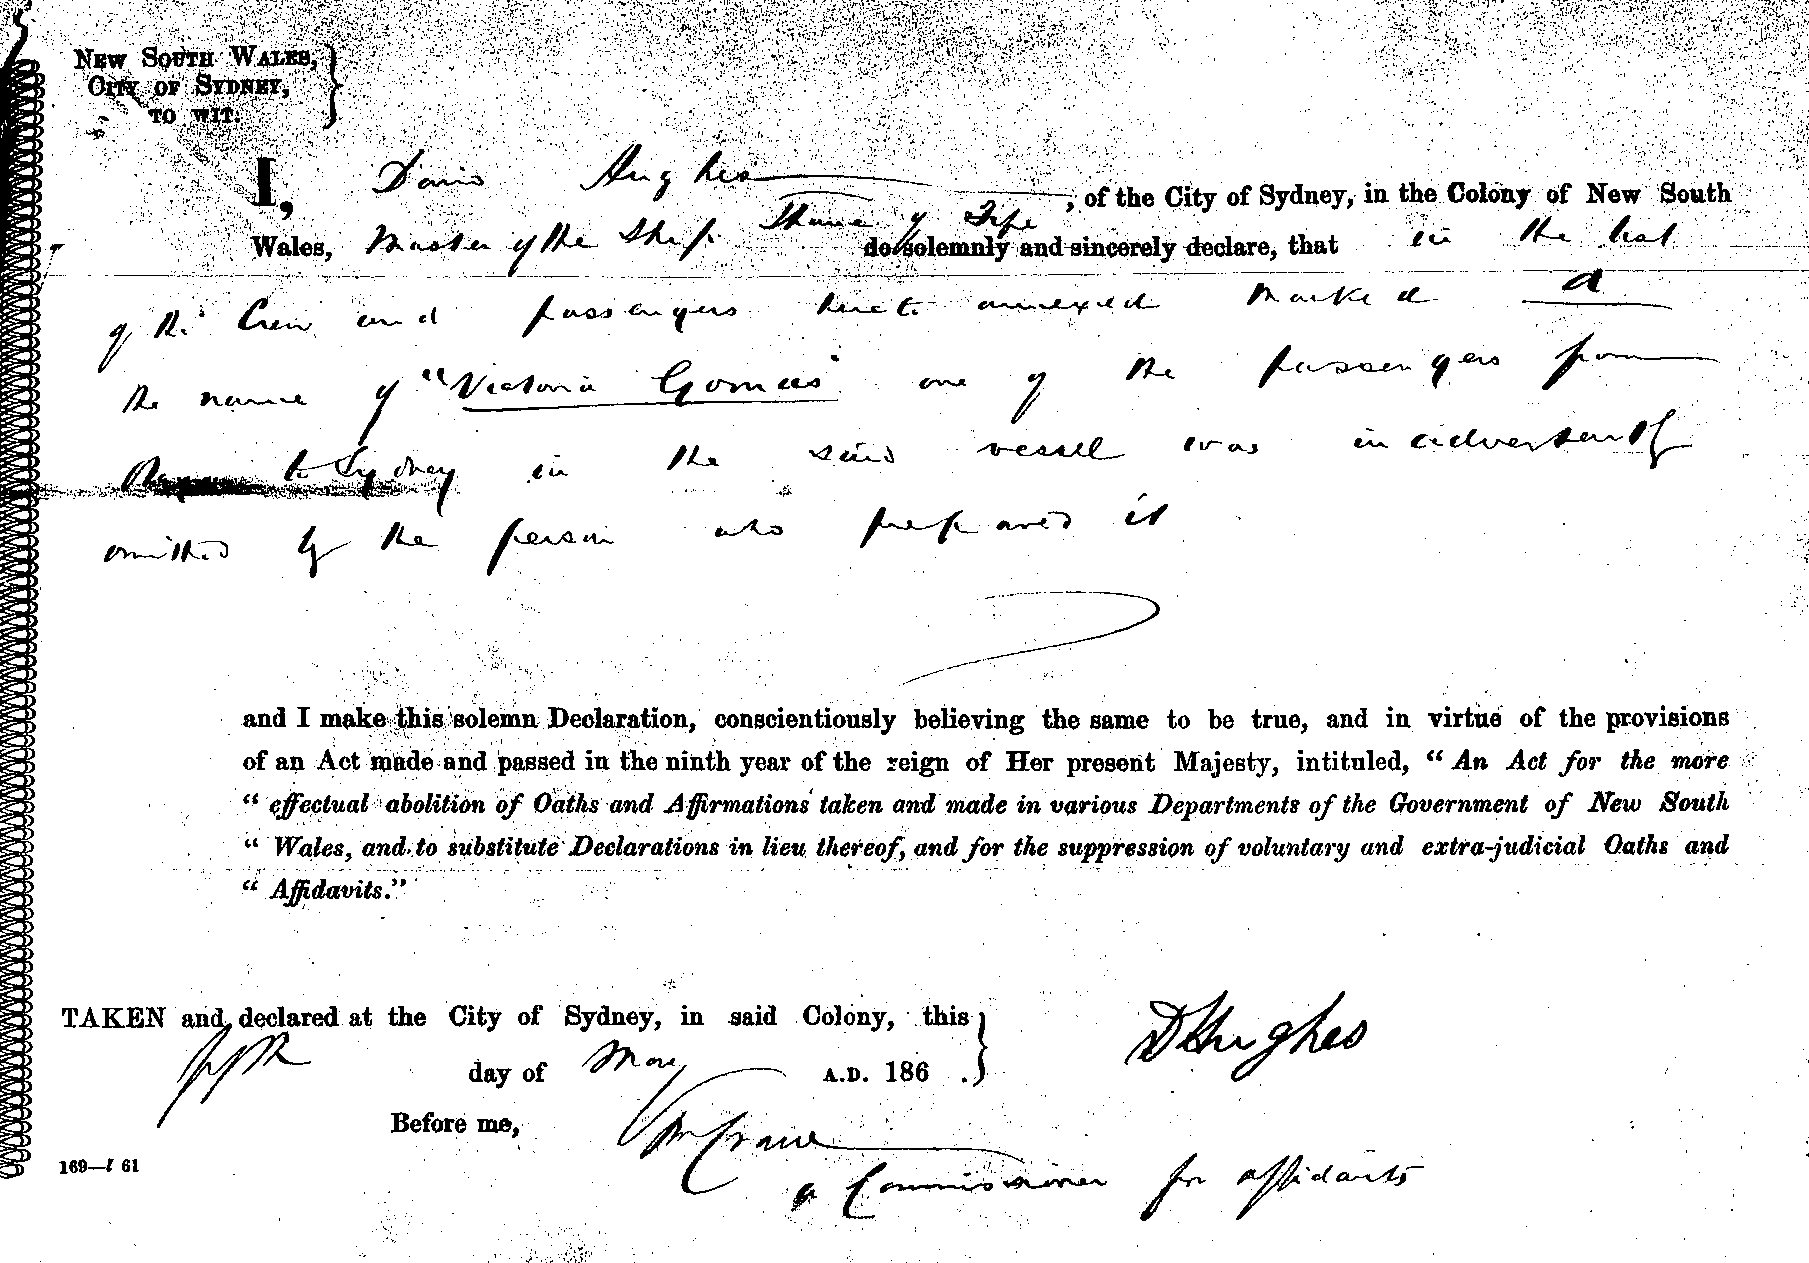 NEW SOUTH WALES,
CITY OF SYDNEY,
TO WIT.
I, David Hughes, of the City of Sydney, in the Colony of New South
Wales, Master of the Ship Thane of Fife do solemnly and sincerely declare, that in the list
of the Crew and passengers hereto annexed marked A
the name of "Victoria Gomes" one of the passengers from
to Sydney in the said vessel was inadvertently
omitted by the person who prepared it
and I make this solemn Declaration, conscientiously believing the same to be true, and in virtue of the provisions
of an Act made and passed in the ninth year of the reign of Her present Majesty, intituled, "An Act for the more
"effectual abolition of Oaths and Affirmations taken and made in various Departments of the Government of New South
"Wales, and to substitute Declarations in lieu thereof, and for the suppression of voluntary and extra-judicial Oaths and
"Affidavits."
TAKEN and declared at the City of Sydney, in said Colony, this
fifth day of May A.D. 186 .
DHughes
Before me,
a Commissioner for affidavits
169—l 61